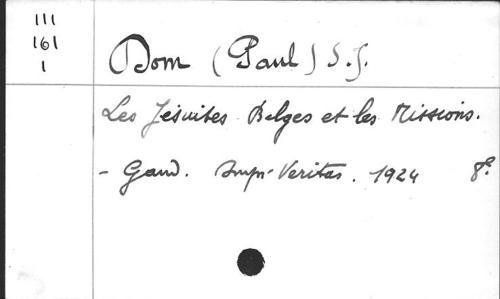 111
161
1
Dom (Paul) S. J.
Les Jésuites Belges et les Missions.
- Gand. Impr. Veritas. 1924 8º